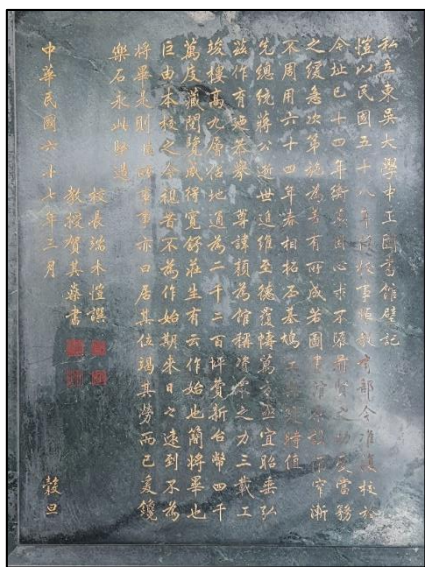 私立東吳大學中正圖書館壁記
愷以民國五十八年受校事時教育部令准復校於
今址已十四年衡志困心求不隳前賢之功爰當務
之緩急次第施為差有所成若圖書館窄漸
不周用六十四年春相柘西基鳩工特值
先總統蔣公逝世追維至德覆幬萬方亟宜貽垂弘
茲作有迺恭舉 尊諱顏為館稱之力三載工
竣樓高九層佔地通為二千二百坪費新台幣四千
萬庋藏閱覽咸得寬舒莊生有云作始也簡將畢也
巨由本校之今視昔不為作始期來日之遠到不為
將畢是則亦曰居其位竭其勞而已爰鐫
樂石永此貽遺
校長端木愷撰
教授賀其燊書
中華民國六十七年三月 穀旦